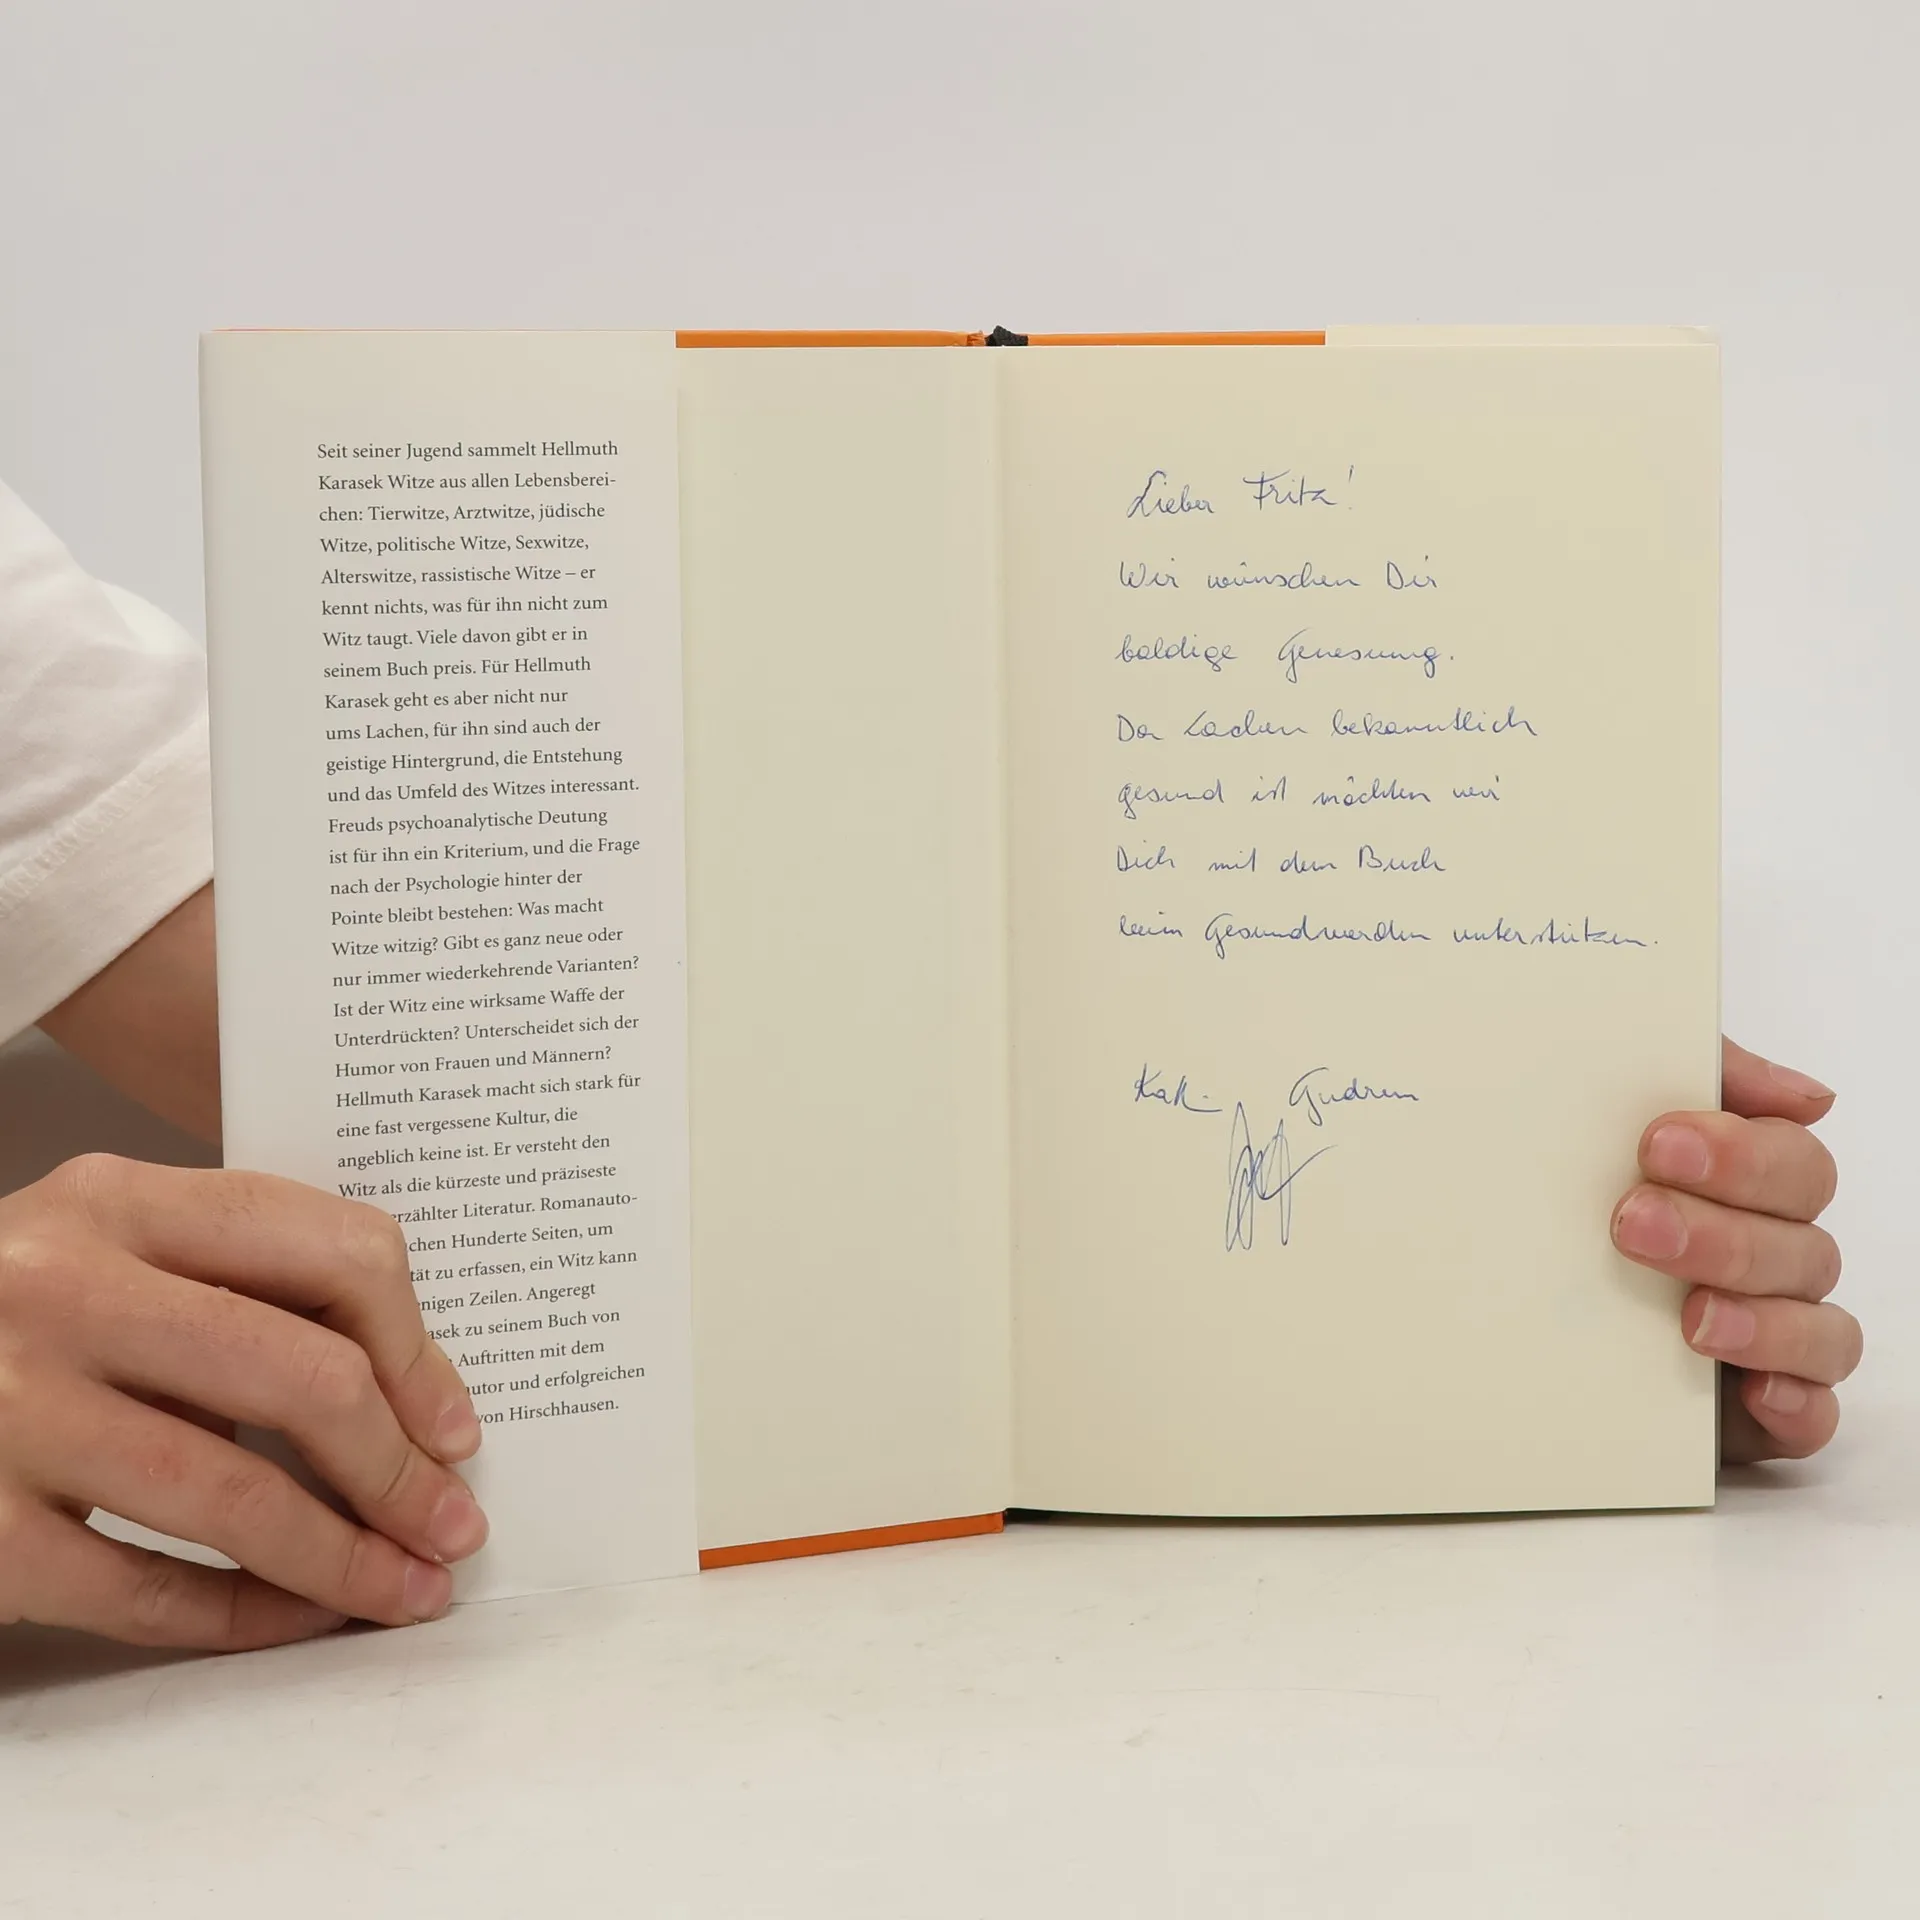 Seit seiner Jugend sammelt Hellmuth
Karasek Witze aus allen Lebensberei-
chen: Tierwitze, Arztwitze, jüdische
Witze, politische Witze, Sexwitze,
Alterswitze, rassistische Witze – er
kennt nichts, was für ihn nicht zum
Witz taugt. Viele davon gibt er in
seinem Buch preis. Für Hellmuth
Karasek geht es aber nicht nur
ums Lachen, für ihn sind auch der
geistige Hintergrund, die Entstehung
und das Umfeld des Witzes interessant.
Freuds psychoanalytische Deutung
ist für ihn ein Kriterium, und die Frage
nach der Psychologie hinter der
Pointe bleibt bestehen: Was macht
Witze witzig? Gibt es ganz neue oder
nur immer wiederkehrende Varianten?
Ist der Witz eine wirksame Waffe der
Unterdrückten? Unterscheidet sich der
Humor von Frauen und Männern?
Hellmuth Karasek macht sich stark für
eine fast vergessene Kultur, die
angeblich keine ist. Er versteht den
Witz als die kürzeste und präziseste
erzählter Literatur. Romanauto-
chen Hunderte Seiten, um
tät zu erfassen, ein Witz kann
nigen Zeilen. Angeregt
asek zu seinem Buch von
Auftritten mit dem
utor und erfolgreichen
von Hirschhausen.
Lieber Fritz!
Wir wünschen Dir
baldige Genesung.
Da Lachen bekanntlich
gesund ist möchten wir
Dich mit dem Buch
beim Gesundwerden unterstützen.
Gudrun